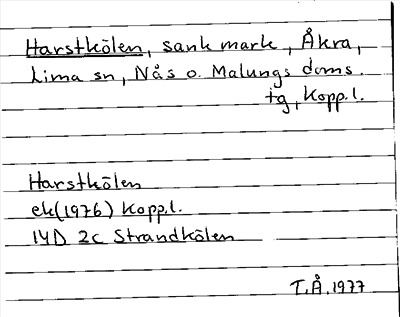 Harstkölen, sank mark, Åkra,
Lima sn, Nås o. Malungs doms.
tg, Kopp.l.
Harstkölen
ek(1976) Kopp.l.
14D 2c Strandkölen
T.Å. 1977